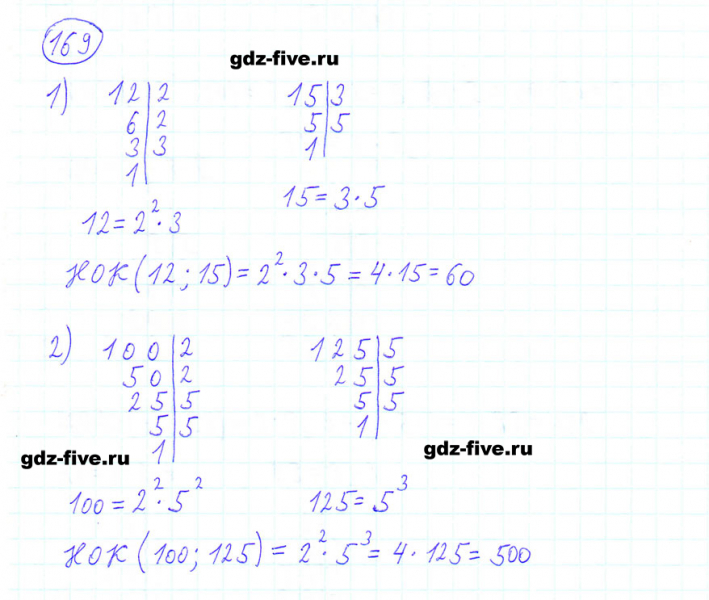 169
gdz-five.ru
1) 12|2 15|3
6|2 5|5
3|3 1|
1|
15=3·5
12=2²·3
НОК(12;15)=2²·3·5=4·15=60
2) 100|2 125|5
50|2 25|5
25|5 5|5
5|5 1|
1|
gdz-five.ru
gdz-five.ru
100=2²·5² 125=5³
НОК(100;125)=2²·5³=4·125=500